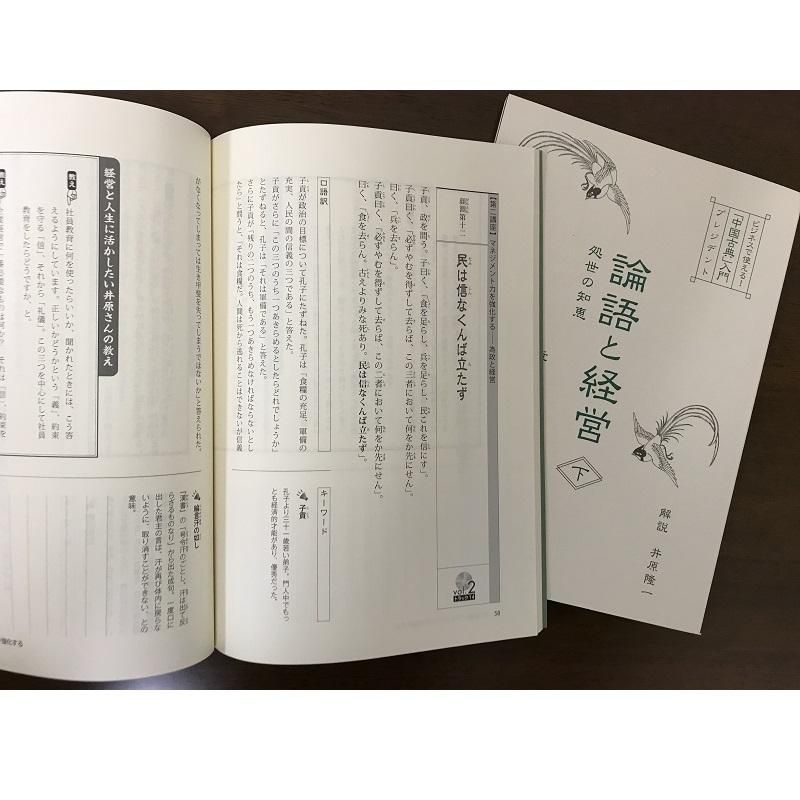 【第二講座】マネジメント力を強化する――為政と経営
顔淵第十二
民は信なくんば立たず
vol.2
トラック14
子貢、政を問う。子曰く、「食を足らし、兵を足らし、民これを信にす」。
子貢曰く、「必ずやむを得ずして去らば、この三者において何をか先にせん」。
曰く、「兵を去らん」。
子貢曰く、「必ずやむを得ずして去らば、この二者において何をか先にせん」。
曰く、「食を去らん。古えよりみな死あり。民は信なくんば立たず」。
口語訳
子貢が政治の目標について孔子にたずねた。孔子は「食糧の充足、軍備の
充実、人民の間の信義の三つである」と答えた。
子貢がさらに「この三つのうち一つあきらめるとしたらどれでしょうか」
とたずねると、孔子は「それは軍備である」と答えた。
さらに子貢が「残りの二つのうち、もう一つあきらめなければならないとし
たら」と問うと、「それは食糧だ。人間は死から逃れることはできないが信義
キーワード
子貢
孔子より三十一歳若い弟子。門人中でもっ
とも経済的才能があり、優秀だった。
50
がなくなってしまっては生き甲斐を失ってしまうではないか」と答えられた。
経営と人生に活かしたい井原さんの教え
教え
社員教育に何を使ったらいいか、聞かれたときには、こう答
えるようにしています。正しいかどうかという「義」、約束
を守る「信」、それから「礼儀」。この三つを中心にして社員
教育をしたらどうですか、と。
教え
綸言汗の如し
『漢書』の「号令汗のごとし、汗は出て反
らざるものなり」から出た成句。一度口に
出した君主の言は、汗が再び体内に戻らな
いように、取り消すことができない、との
意味。
強化する
ビジネスで使える!
「中国古典」入門
プレジデント
処世の知恵
論語と経営
下
解説 井原隆一